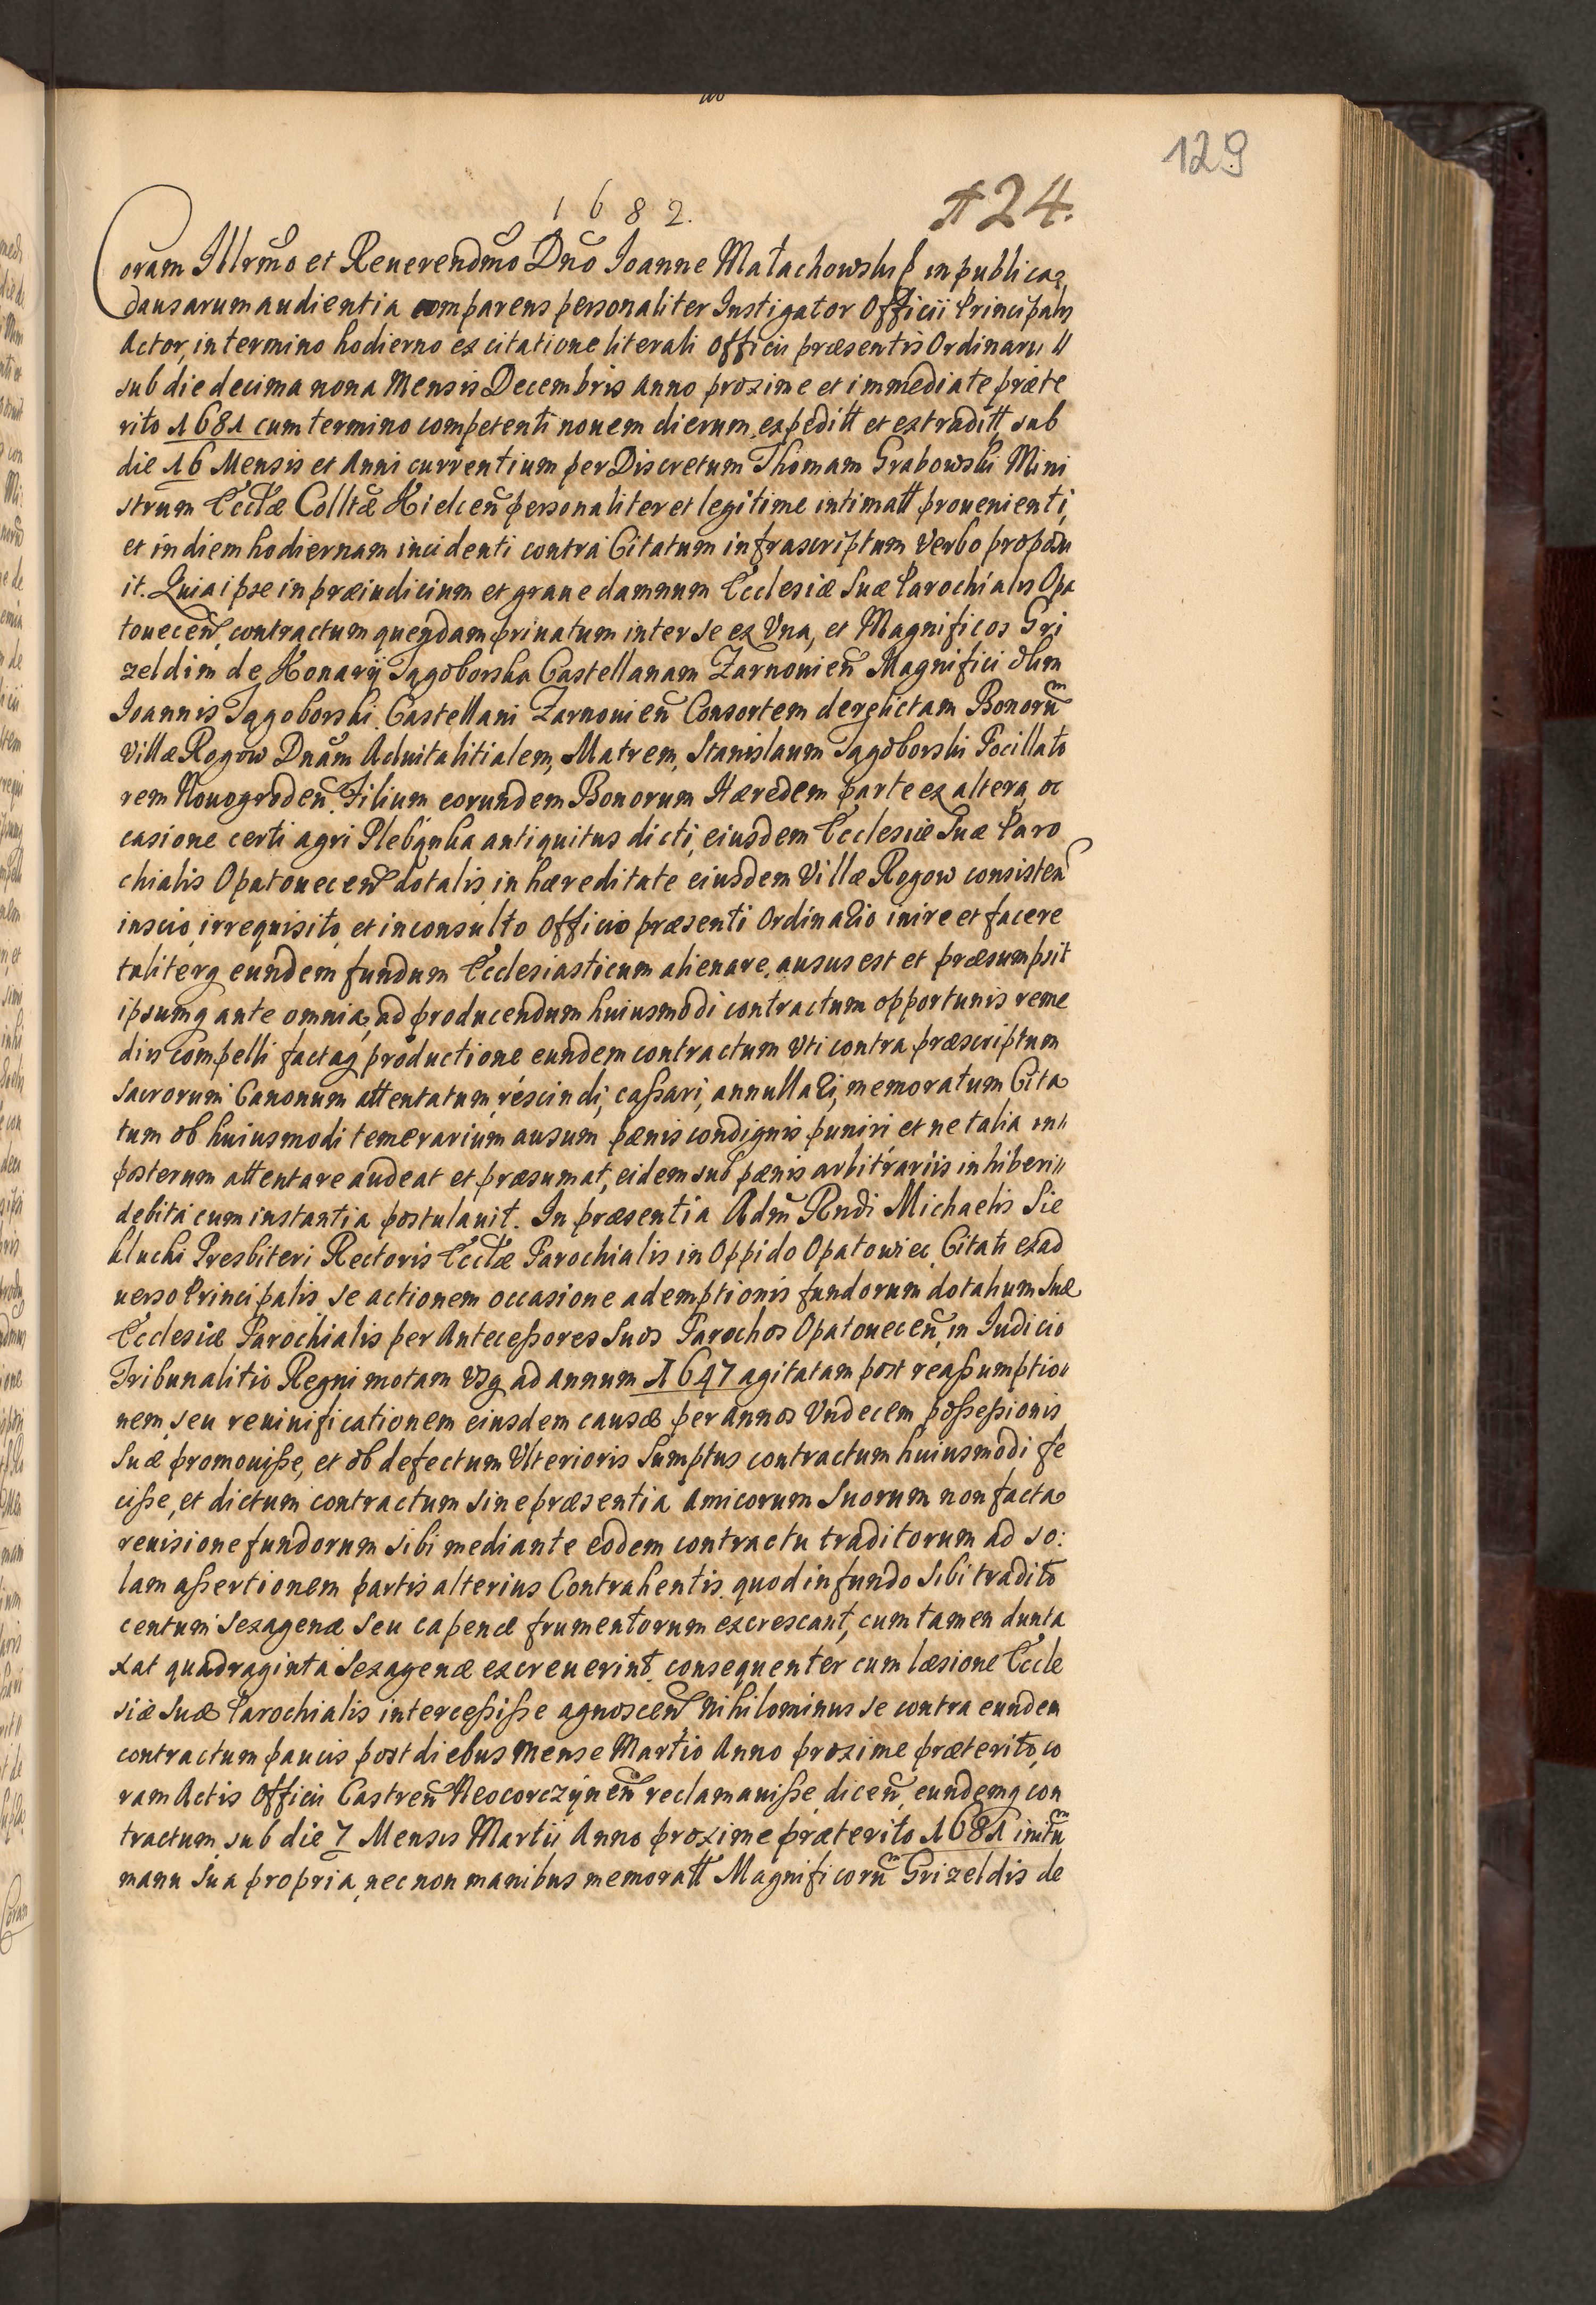 129
1682.
124.
Coram Illrmo et Reuerendmo Dno Ioanne Małachowski in publica
causarum audientia comparens personaliter Instigator Officii Principalis
Actor, in termino hodierno ex citatione literali Officii præsentis Ordinarii
sub die decima nona Mensis Decembris Anno proxime et immediate præte
rito 1681 cum termino competenti nouem dierum, expeditt et extraditt, sub
die 16 Mensis et Anni currentium per Discretum Thomam Grabowski Mini
strum Ecclæ Colltæ Kielcen personaliter et legitime intimatt prouenienti,
et in diem hodiernam incidenti contra Citatum infrascriptum Verbo proposu
it. Quia ipse in præiudicium et graue damnum Ecclesiæ Suæ Parochialis Opa
touecen, contractum quendam priuatum inter se ex Vna, et Magnificos Gri
zeldim de Konary Jagoborska Castellanam Zarnouien Magnifici olim
Ioannis Jagoborski Castellani Zarnouien Consortem derelictam Bonorum
Villæ Rogow Dnam Aduitalitialem, Matrem, Stanislaum Jagoborski Pocillato
rem Nouogroden. Filium eorundem Bonorum Hæredem parte ex altera, oc
casione certi agri Plebąnka antiquitus dicti, eiusdem Ecclesiæ Suæ Paro
chialis Opatouecen dotalis, in hæreditate eiusdem Villæ Rogow consisten
inscio, irrequisito, et inconsulto Officio præsenti Ordinario inire et facere
taliterq eundem fundum Ecclesiasticum alienare, ausus est et præsumpsit
ipsumq ante omnia, ad producendum huiusmodi contractum opportunis reme
diis compelli factaq productione eundem contractum Vti contra præscriptum
sacrorum Canonum attentatum, rescindi, cassari, annullari, memoratum Cita
tum ob huiusmodi temerarium ausum pænis condignis puniri et ne talia in
posterum attentare audeat et præsumat, eidem sub pænis arbitrariis inhiberi
debita cum instantia postulauit. In præsentia Adm Rndi Michaelis Sie
klucki Presbiteri Rectoris Ecclæ Parochialis in Oppido Opatowiec Citati ex ad
uerso Principalis se actionem occasione ademptionis fundorum dotalium Suæ
Ecclesiæ Parochialis per Antecessores Suos Parochos Opatouecen, in Iudicio
Tribunalitio Regni motam Vsq ad annum 1647 agitatam post reassumptio
nem, seu reuiuificationem eiusdem causæ per annos Vndecem possessionis
Suæ promouisse, et ob defectum Vlterioris Sumptus contractum huiusmodi fe
cisse, et dictum contractum sine præsentia Amicorum Suorum non facta
reuisione fundorum sibi mediante eodem contractu traditorum ad so:
lam assertionem partis alterius Contrahentis, quod in fundo sibi tradito
centum Sexagenæ seu capenæ frumentorum excrescant, cum tamen dunta
xat quadraginta Sexagenæ excreuerint, consequenter cum læsione Eccle
siæ Suæ Parochialis intercessisse agnoscen nihilominus se contra eundem
contractum paucis post diebus Mense Martio Anno proxime præterito, co
ram Actis Officii Castren Neocorczynen reclamauisse, dicen, eundemq con
tractum, sub die 7 Mensis Martii Anno proxime præterito 1681 initum
manu Sua propria, necnon manibus memoratt Magnificorum Grizeldis de